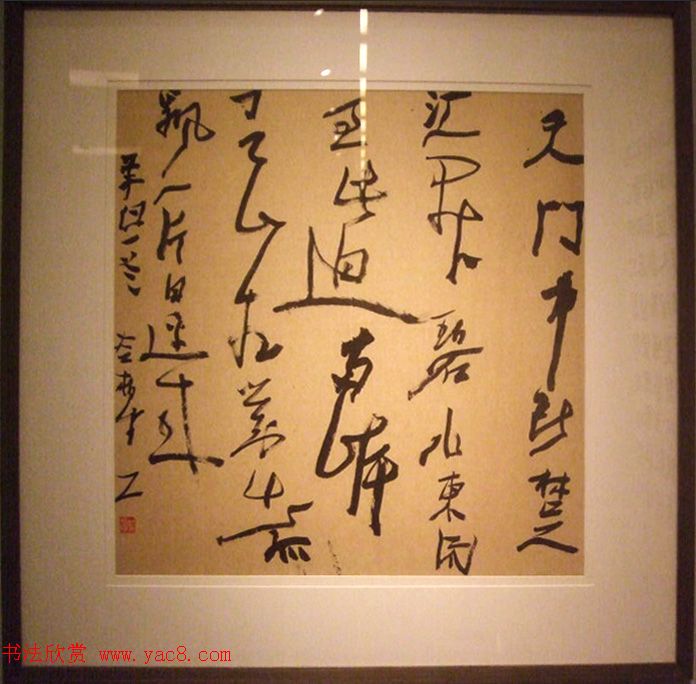 天门中断楚
江開碧水東流
至此迴兩岸
青山相對出孤
帆一片日邊來
书法欣赏 www.yac8.com